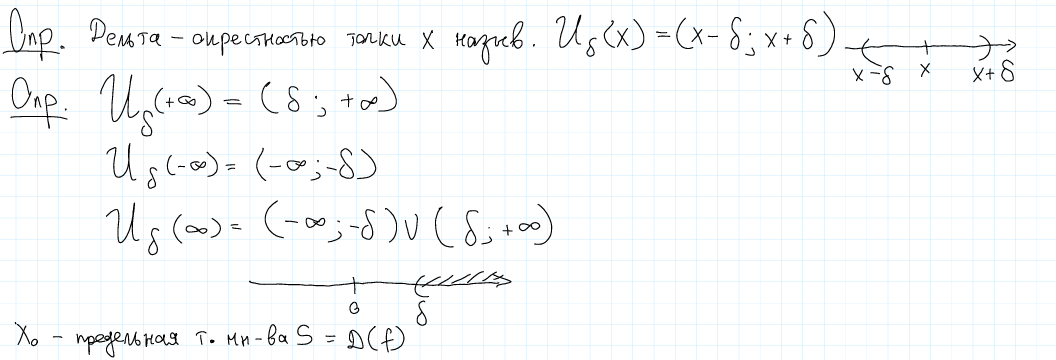 Опр. Дельта-окрестностью точки x назыв. U_δ(x) = (x-δ; x+δ)
x-δ x x+δ
Опр. U_δ(+∞) = (δ; +∞)
U_δ(-∞) = (-∞; -δ)
U_δ(∞) = (-∞; -δ) ∪ (δ; +∞)
0 δ
x₀ - предельная т. мн-ва S = D(f)